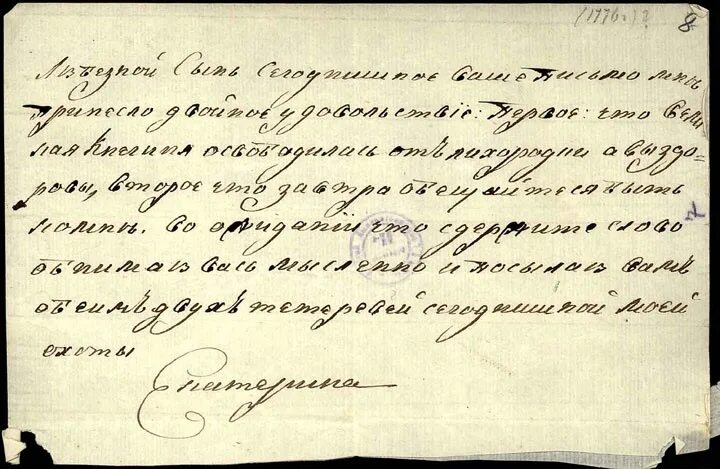 (1776 г.)?
8
Лѣбезной Сынъ Сегоднишное ваше письмо мнѣ
принесло двойное удовольствіе: первое: что Вели
кая Княгиня освободилась отъ лихородки а выздо-
ровы, второе что завтра обещайтеся быть
ко мнѣ. Во ожиданіи что сдержите слово
обнимаю васъ мысленно и посылаю вамъ
обеимъ двухъ тетеревей сегоднишной моей
охоты
Екатерина